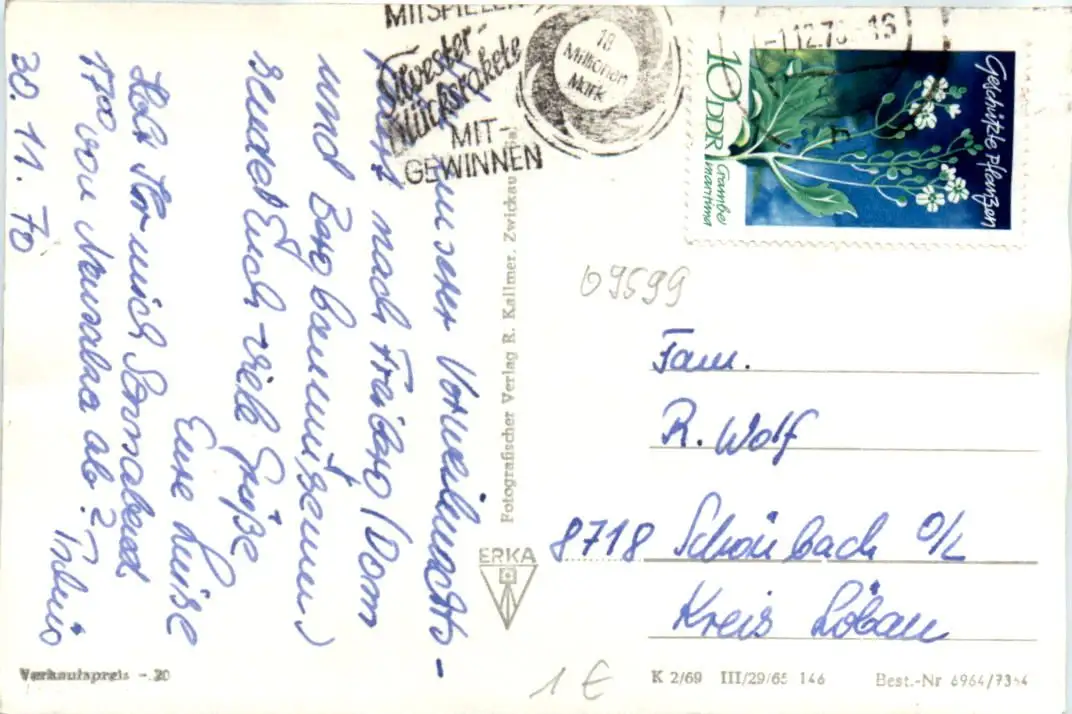 MITSPIELEN
Silvester-
Glücksrakete
MIT-
GEWINNEN
18
Millionen
Mark
-1.12.70-16
Geschützte Pflanzen
10 DDR
Crambe
maritima
unserer Vorweihnachts-
nach Freiberg (Dom
und Bergbaumuseum)
sendet Euch viele Grüße
Eure Luise
Holt Ihr mich Sonnabend
17⁰⁰ von Neusalza ab? Tschüs
30.11.70
Fotografischer Verlag R. Kallmer, Zwickau
ERKA
09599
Fam.
R. Wolf
8718 Schönbach O/L
Kreis Löbau
Verkaufspreis -.20
1 €
K 2/69 III/29/65 146
Best.-Nr 6964/7344